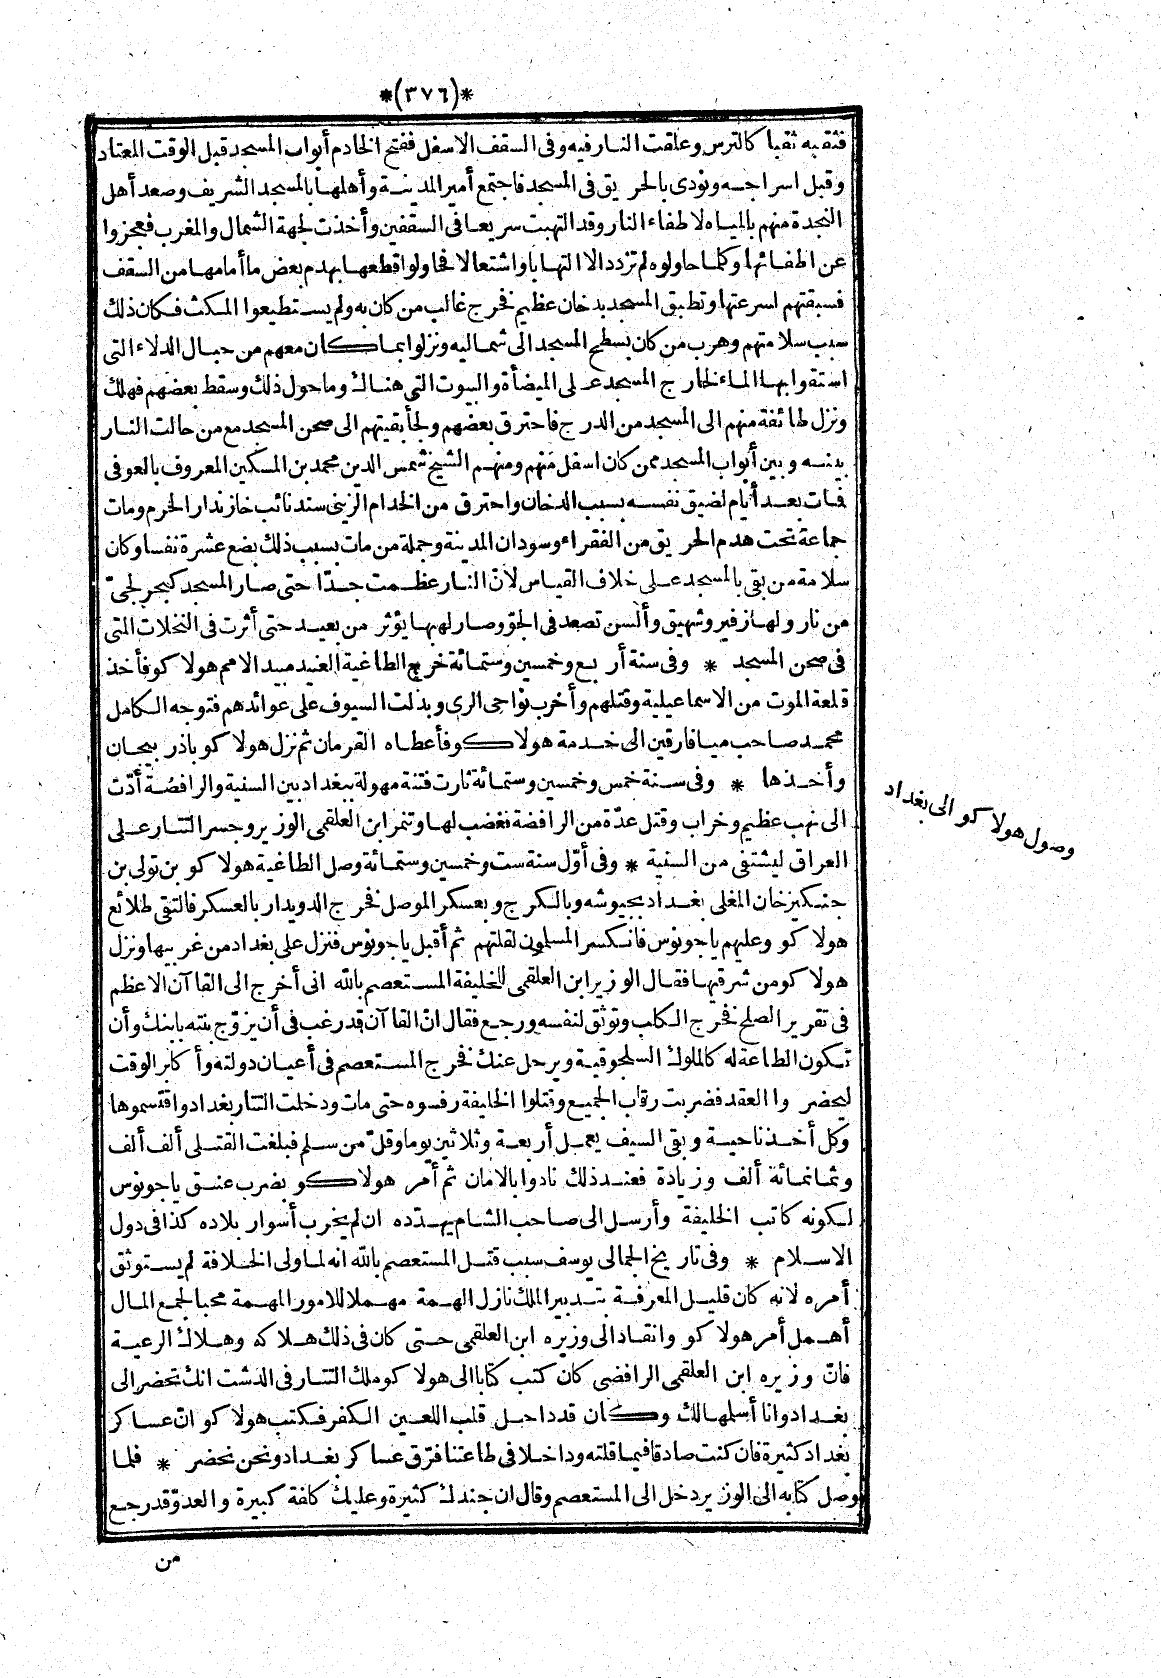 *(٣٧٦)*
فثقبه ثقبا كالترس وعلقت النار فيه وفى السقف الاسفل ففتح الخادم أبواب المسجد قبل الوقت المعتاد
وقبل اسراجه ونودى بالحريق فى المسجد فاجتمع أمير المدينة وأهلها بالمسجد الشريف وصعد أهل
النجدة منهم بالمياه لاطفاء النار وقد التهبت سريعا فى السقفين وأخذت لجهة الشمال والمغرب فعجزوا
عن اطفائها وكلما حاولوه لم تزدد الا التهابا واشتعالا فحاولوا قطعها بهدم بعض ما أمامها من السقف
فسبقتهم لسرعتها وتطبق المسجد بدخان عظيم فخرج غالب من كان به ولم يستطيعوا المكث فكان ذلك
سبب سلامتهم وهرب من كان بسطح المسجد الى شماليه ونزلوا بما كان معهم من حبال الدلاء التى
استقوا بها الماء لخارج المسجد على الميضأة والبيوت التى هناك وما حول ذلك وسقط بعضهم فهلك
ونزل طائفة منهم الى المسجد من الدرج فاحترق بعضهم ولجأ بقيتهم الى صحن المسجد مع من حالت النار
بينه وبين أبواب المسجد ممن كان اسفل منهم ومنهم الشيخ شمس الدين محمد بن المسكين المعروف بالعوفى
فمات بعد أيام لضيق نفسه بسبب الدخان واحترق من الخدام الزينى سند نائب خازندار الحرم ومات
جماعة تحت هدم الحريق من الفقراء وسودان المدينة وجملة من مات بسبب ذلك بضع عشرة نفسا وكان
سلامة من بقى بالمسجد على خلاف القياس لانّ النار عظمت جدّا حتى صار المسجد كبحر لجىّ
من نار ولها زفير وشهيق وألسن تصعد فى الجوّ وصار لهبها يؤثر من بعيد حتى أثرت فى النخلات التى
فى صحن المسجد * وفى سنة أربع وخمسين وستمائة خرج الطاغية العنيد مبيد الامم هولاكو فأخذ
قلعة الموت من الاسماعيلية وقتلهم وأخرب نواحى الرى وبذلت السيوف على عوائدهم فتوجه الكامل
محمد صاحب ميافارقين الى خدمة هولاكو فأعطاه الفرمان ثم نزل هولاكو باذربيجان
وأخذها * وفى سنة خمس وخمسين وستمائة ثارت فتنة مهولة ببغداد بين السنية والرافضة أدّت
الى نهب عظيم وخراب وقتل عدّة من الرافضة فغضب لها وتنمر ابن العلقمى الوزير وجسر التتار على
العراق ليشتفى من السنية * وفى أوّل سنة ست وخمسين وستمائة وصل الطاغية هولاكو بن تولى بن
جنكيزخان المغلى بغداد بجيوشه وبالكرج وبعسكر الموصل فخرج الدويدار بالعسكر فالتقى طلائع
هولاكو وعليهم ياجونوس فانكسر المسلمون لقلتهم ثم أقبل ياجونوس فنزل على بغداد من غربيها ونزل
هولاكو من شرقيها فقال الوزير ابن العلقمى للخليفة المستعصم بالله انى أخرج الى القاآن الاعظم
فى تقرير الصلح فخرج الكلب وتوثق لنفسه ورجع فقال انّ القاآن قد رغب فى أن يزوّج بنته بابنك وأن
تكون الطاعة له كالملوك السلجوقية ويرحل عنك فخرج المستعصم فى أعيان دولته وأكابر الوقت
ليحضروا العقد فضربت رقاب الجميع وقتلوا الخليفة رفسوه حتى مات ودخلت التتار بغداد واقتسموها
وكل أخذ ناحية وبقى السيف يعمل أربعة وثلاثين يوما وقلّ من سلم فبلغت القتلى ألف ألف
وثمانمائة ألف وزيادة فعند ذلك نادوا بالامان ثم أمر هولاكو بضرب عنق ياجونوس
لكونه كاتب الخليفة وأرسل الى صاحب الشام يهدّده ان لم يخرب أسوار بلاده كذا فى دول
الاسلام * وفى تاريخ الجمالى يوسف سبب قتل المستعصم بالله انه لما ولى الخلافة لم يستوثق
أمره لانه كان قليل المعرفة بتدبير الملك نازل الهمة مهملا للامور المهمة محبا لجمع المال
أهمل أمر هولاكو وانقاد الى وزيره ابن العلقمى حتى كان فى ذلك هلاكه وهلاك الرعية
فانّ وزيره ابن العلقمى الرافضى كان كتب كتابا الى هولاكو ملك التتار فى الدشت انك تحضر الى
بغداد وانا أسلمها لك وكان قد داخل قلب اللعين الكفر فكتب هولاكو انّ عساكر
بغداد كثيرة فان كنت صادقا فيما قلته وداخلا فى طاعتنا فرّق عساكر بغداد ونحن نحضر * فلما
وصل كتابه الى الوزير دخل الى المستعصم وقال ان جندك كثيرة وعليك كلفة كبيرة والعدوّ قد رجع
من
وصول هولاكو الى بغداد